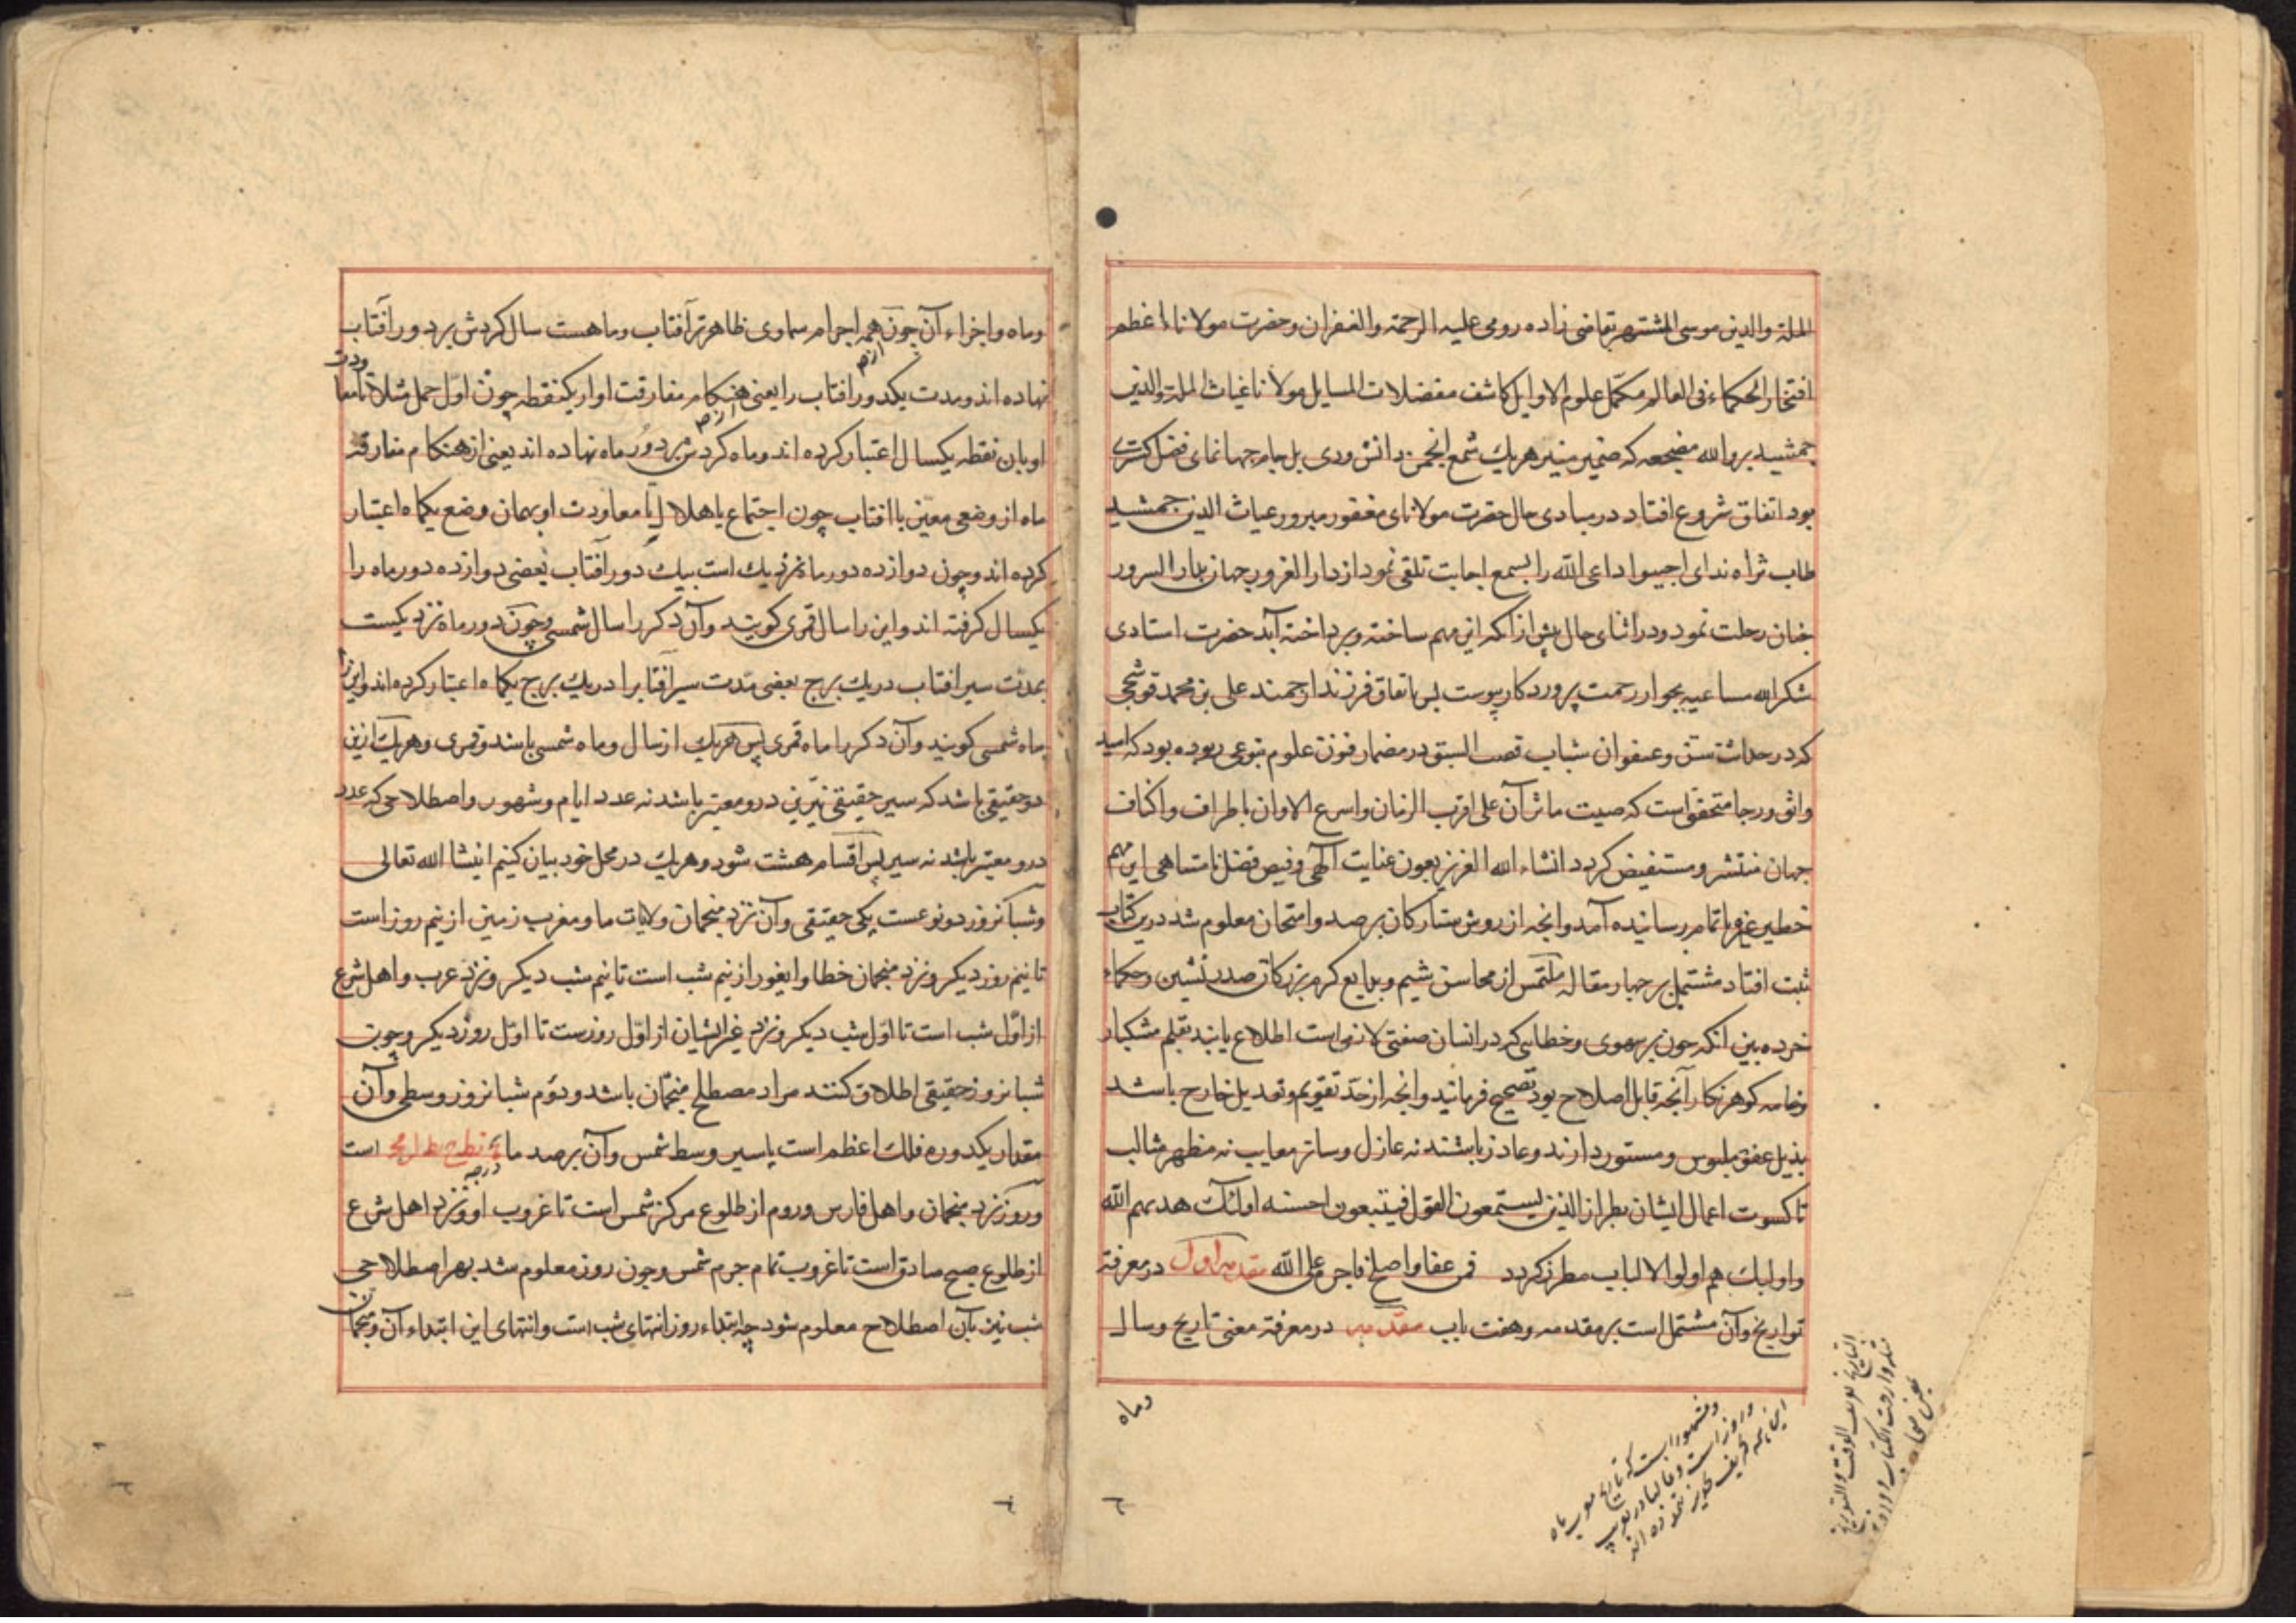 الملة والدین موسی المشتهر بقاضی زاده رومی علیه الرحمة والغفران وحضرت مولانا اعظم
افتخار الحکماء فی العالم مکمّل علوم الاوایل کاشف معضلات المسایل مولانا غیاث الملة والدین
جمشید برد الله مضجعه که ضمیر منیر هریک شمع انجمن دانش وری بل جام جهانمای فضل کتری
بود اتفاق شروع افتاد در مبادی حال حضرت مولانای مغفور مبرور غیاث الدین جمشید
طاب ثراه ندای اجیبوا داعی الله را بسمع اجابت تلقی نمود از دار الغرور جهان بدار السرور
جنان رحلت نمود ودر اثنای حال پیش از انکه این مهم ساخته وپرداخته آید حضرت استادی
شکر الله مساعیه بجوار رحمت پروردکار پیوست پس باتفاق فرزند ارجمند علی بن محمد قوشچی
که در حداثت سن وعنفوان شباب قصب السبق در مضمار فنون علوم بنوعی ربوده بود که امید
واثق ورجا متحقق است که صیت ماثر آن علی اقرب الزمان واسرع الاوان باطراف واکناف
جهان منتشر ومستفیض کردد انشاء الله العزیز بعون عنایت آلهی وفیض فضل نامتناهی این مهم
خطیر باتمام رسانیده آمد وانچه از روش ستارکان برصد وامتحان معلوم شد درین کتاب
ثبت افتاد مشتمل بر چهار مقاله ملتمس از محاسن شیم وبدایع کرم بزرکان صدر نشین وحکماء
خرده بین انکه چون بر سهوی وخطایی که در انسان صفتی لازمی است اطلاع یابند بقلم مشکبار
وخامه کوهر نکار آنچه قابل اصلاح بود تصحیح فرمایند وانچه از حدّ تقویم وتعدیل خارج باشد
بذیل عفو ملبوس ومستور دارند وعاذر باشند نه عاذل وساتر معایب نه مظهر مثالب
تا کسوت اعمال ایشان بطراز الذین یستمعون القول فیتبعون احسنه اولئک هدیهم الله
واولیک هم اولوا الالباب مطرز کردد فمن عفا واصلح فاجره علی الله مقدمه اول در معرفة
تواریخ وآن مشتمل است بر مقدمه وهفت باب مقدمه در معرفة معنی تاریخ وسال
وماه
وماه واجزاء آن چون همه اجرام سماوی ظاهرتر آفتاب وماهست سال کردش بر دور آفتاب
نهاده اند ومدت یکدور افتاب را یعنی هنکام مفارقت او از یکنقطه چون اوّل حمل مثلا تا معاودت
او بان نقطه یکسال اعتبار کرده اند وماه کردش بر دور ماه نهاده اند یعنی از هنکام مفارقت
ماه از وضعی معیّن با افتاب چون اجتماع یا هلال تا معاودت او بهمان وضع یکماه اعتبار
کرده اند وچون دوازده دور ماه نزدیک است بیک دور آفتاب بعضی دوازده دور ماه را
یکسال کرفته اند واین را سال قمری کویند وآن دکر را سال شمسی وچون دور ماه نزدیکست
بمدّت سیر افتاب در یک برج بعضی مدّت سیر آفتابرا در یک برج یکماه اعتبار کرده اند واین را
ماه شمسی کویند وآن دکر را ماه قمری پس هریک از سال وماه شمسی باشد وقمری وهریک ازین
دو حقیقی باشد که سیر حقیقی نیّرین درو معتبر باشد نه عدد ایام وشهور واصطلاحی که عدد
درو معتبر باشد نه سیر پس اقسام هشت شود وهریک در محل خود بیان کنیم انشا الله تعالی
وشبانروز دو نوعست یکی حقیقی وآن نزد منجمان ولایات ما ومغرب زمین از نیم روز است
تا نیم روز دیکر ونزد منجمان خطا وایغور از نیم شب است تا نیم شب دیکر ونزد عرب واهل شرع
از اوّل شب است تا اوّل شب دیکر ونزد غیر ایشان از اوّل روزست تا اوّل روز دیکر وچون
شبانروز حقیقی اطلاق کنند مراد مصطلح منجّمان باشد ودوّم شبانروز وسطی وآن
مقدار یکدوره فلک اعظم است یا سیر وسط شمس وآن برصد ما است
درجه
وروز نزد منجمان واهل فارس وروم از طلوع مرکز شمس است تا غروب او ونزد اهل شرع
از طلوع صبح صادق است تا غروب تمام جرم شمس وچون روز معلوم شد بهر اصطلاحی
شب نیز بآن اصطلاح معلوم شود چه ابتداء روز انتهای شب است وانتهای این ابتداء آن ومنجمان